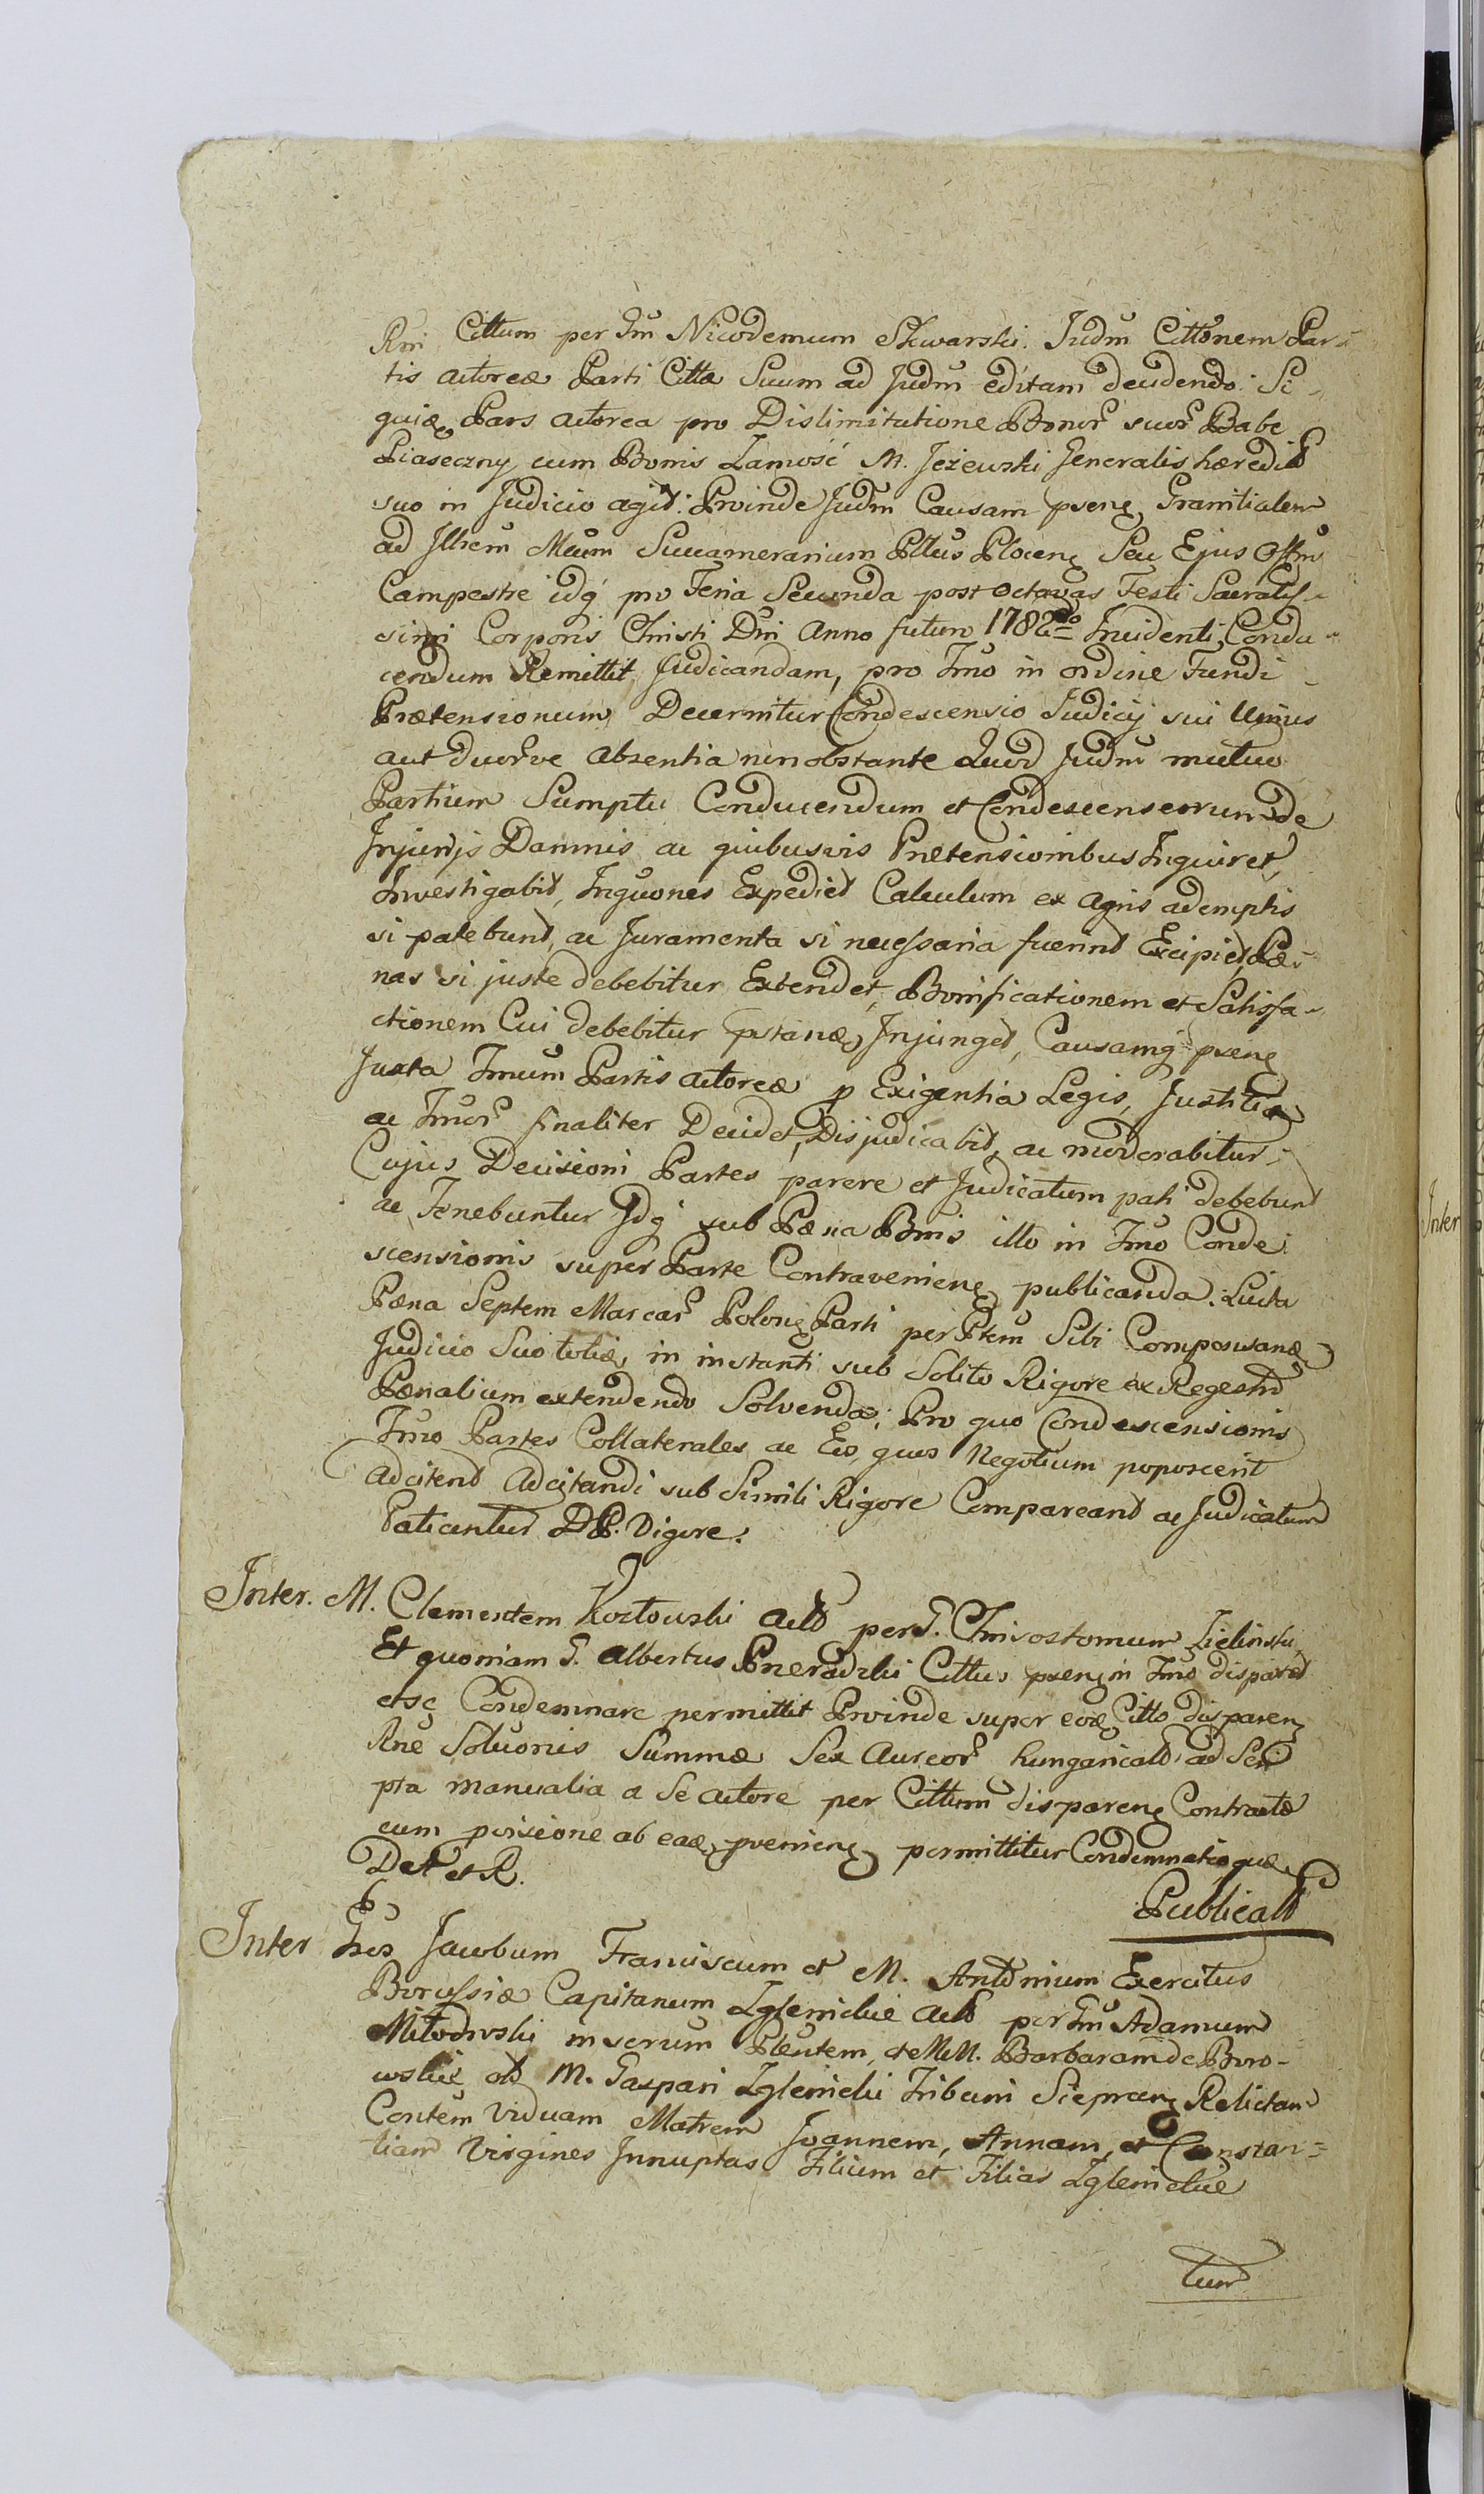 Rni Cittum per Gm Nicodemum Skwarski. Judm Cittonem Par-
tis actoreæ Parti Cittæ Suum ad Judm editam deudendo. Si
quidē Pars actorea pro Dislimitatione Bonor suor Babe
Piaseczny cum Bonis Zamość M. Jeżewski Generalis hæredit
suo in Judicio agit: Proinde Judm Causam psenē Granitialem
ad Illrem Meum Succamerarium Pltus Plocenē Seu Ejus Offm
Campestre idq pro Feria Secunda post octavas Festi Sacratis-
simi Corporis Christi Dni Anno futuro 1782do Incidenti Condu-
cendum Remittit Judicandam, pro Tmo in ordine Fundi
Prætensionum Decernitur Condescensio Judicij sui Unius
aut duorve absentia non obstante Quod Judm mutuo
Partium Sumptu Conducendum et Condescensurum de
Injurijs Damnis ac quibusvis Prætensionibus Inquiret,
Investigabit, Inquones Expediet Calculum ex agris ademptis
si patebunt, ac Juramenta si necessaria fuerint Excipiet, Pæ-
nas si juste debebitur Extendet, Bonificationem et Satisfa-
ctionem Cui debebitur pstanæ Injunget, Causamq psenē
Juxta Tmum Partis actoreæ p Exigentia Legis, Justitiæ
ac Tmor finaliter Decidet, Disjudicabit, ac moderabitur
Cujus Decisioni Partes parere et Judicatum pati debebunt
ac Tenebuntur Idq sub Pæna Bnis illo in Tmo Conde
scensionis super Parte Contravenienē publicanda. Lucta
Pæna Septem Marcar Polonē Parti per Ptem Sibi Composwanæ
Judicio Suo totiæ, in instanti sub Solito Rigore ex Regestro
Pænalium extendendo Solvenda; Pro quo Condescensionis
Tmo Partes Collaterales ac Eos, quos Negotium poposcerit
adcitent adcitandi sub Simili Rigore Compareant ac Judicatum
Patiantur D P. Vigore.
Inter. M. Clementem Kozłowski actō per G. Chrisostomum Zielinski
Et quoniam G. Albertus Pneradzki Cittus psenē in Tmo disparet
etsē Condemnare permittit Proinde super eoē Citto disparenē
Rne Soluonis Summæ Sex Aureor hungaricalō ad Scri
pta manualia a Se actore per Cittum disparenē Contractæ
cum pvisione ab eaē pvenienē permittitur Condemnatio quæ
Det et R.
Publicalō
Inter Gsos Jacobum Franciscum et M. Antonium Exercitus
Borussiæ Capitaneum Zglenickie actō per Gm Adamum
Miłodrowski inserum Pleutem, et MM. Barbaram de Boro-
wskie olō M. Gaspari Zglenicki Tribuni Sieprcenē Relictam
Contem viduam Matrem Joannem, Annam, et Constan=
tiam Virgines Innuptas Filium et Filias Zglenickie
tum